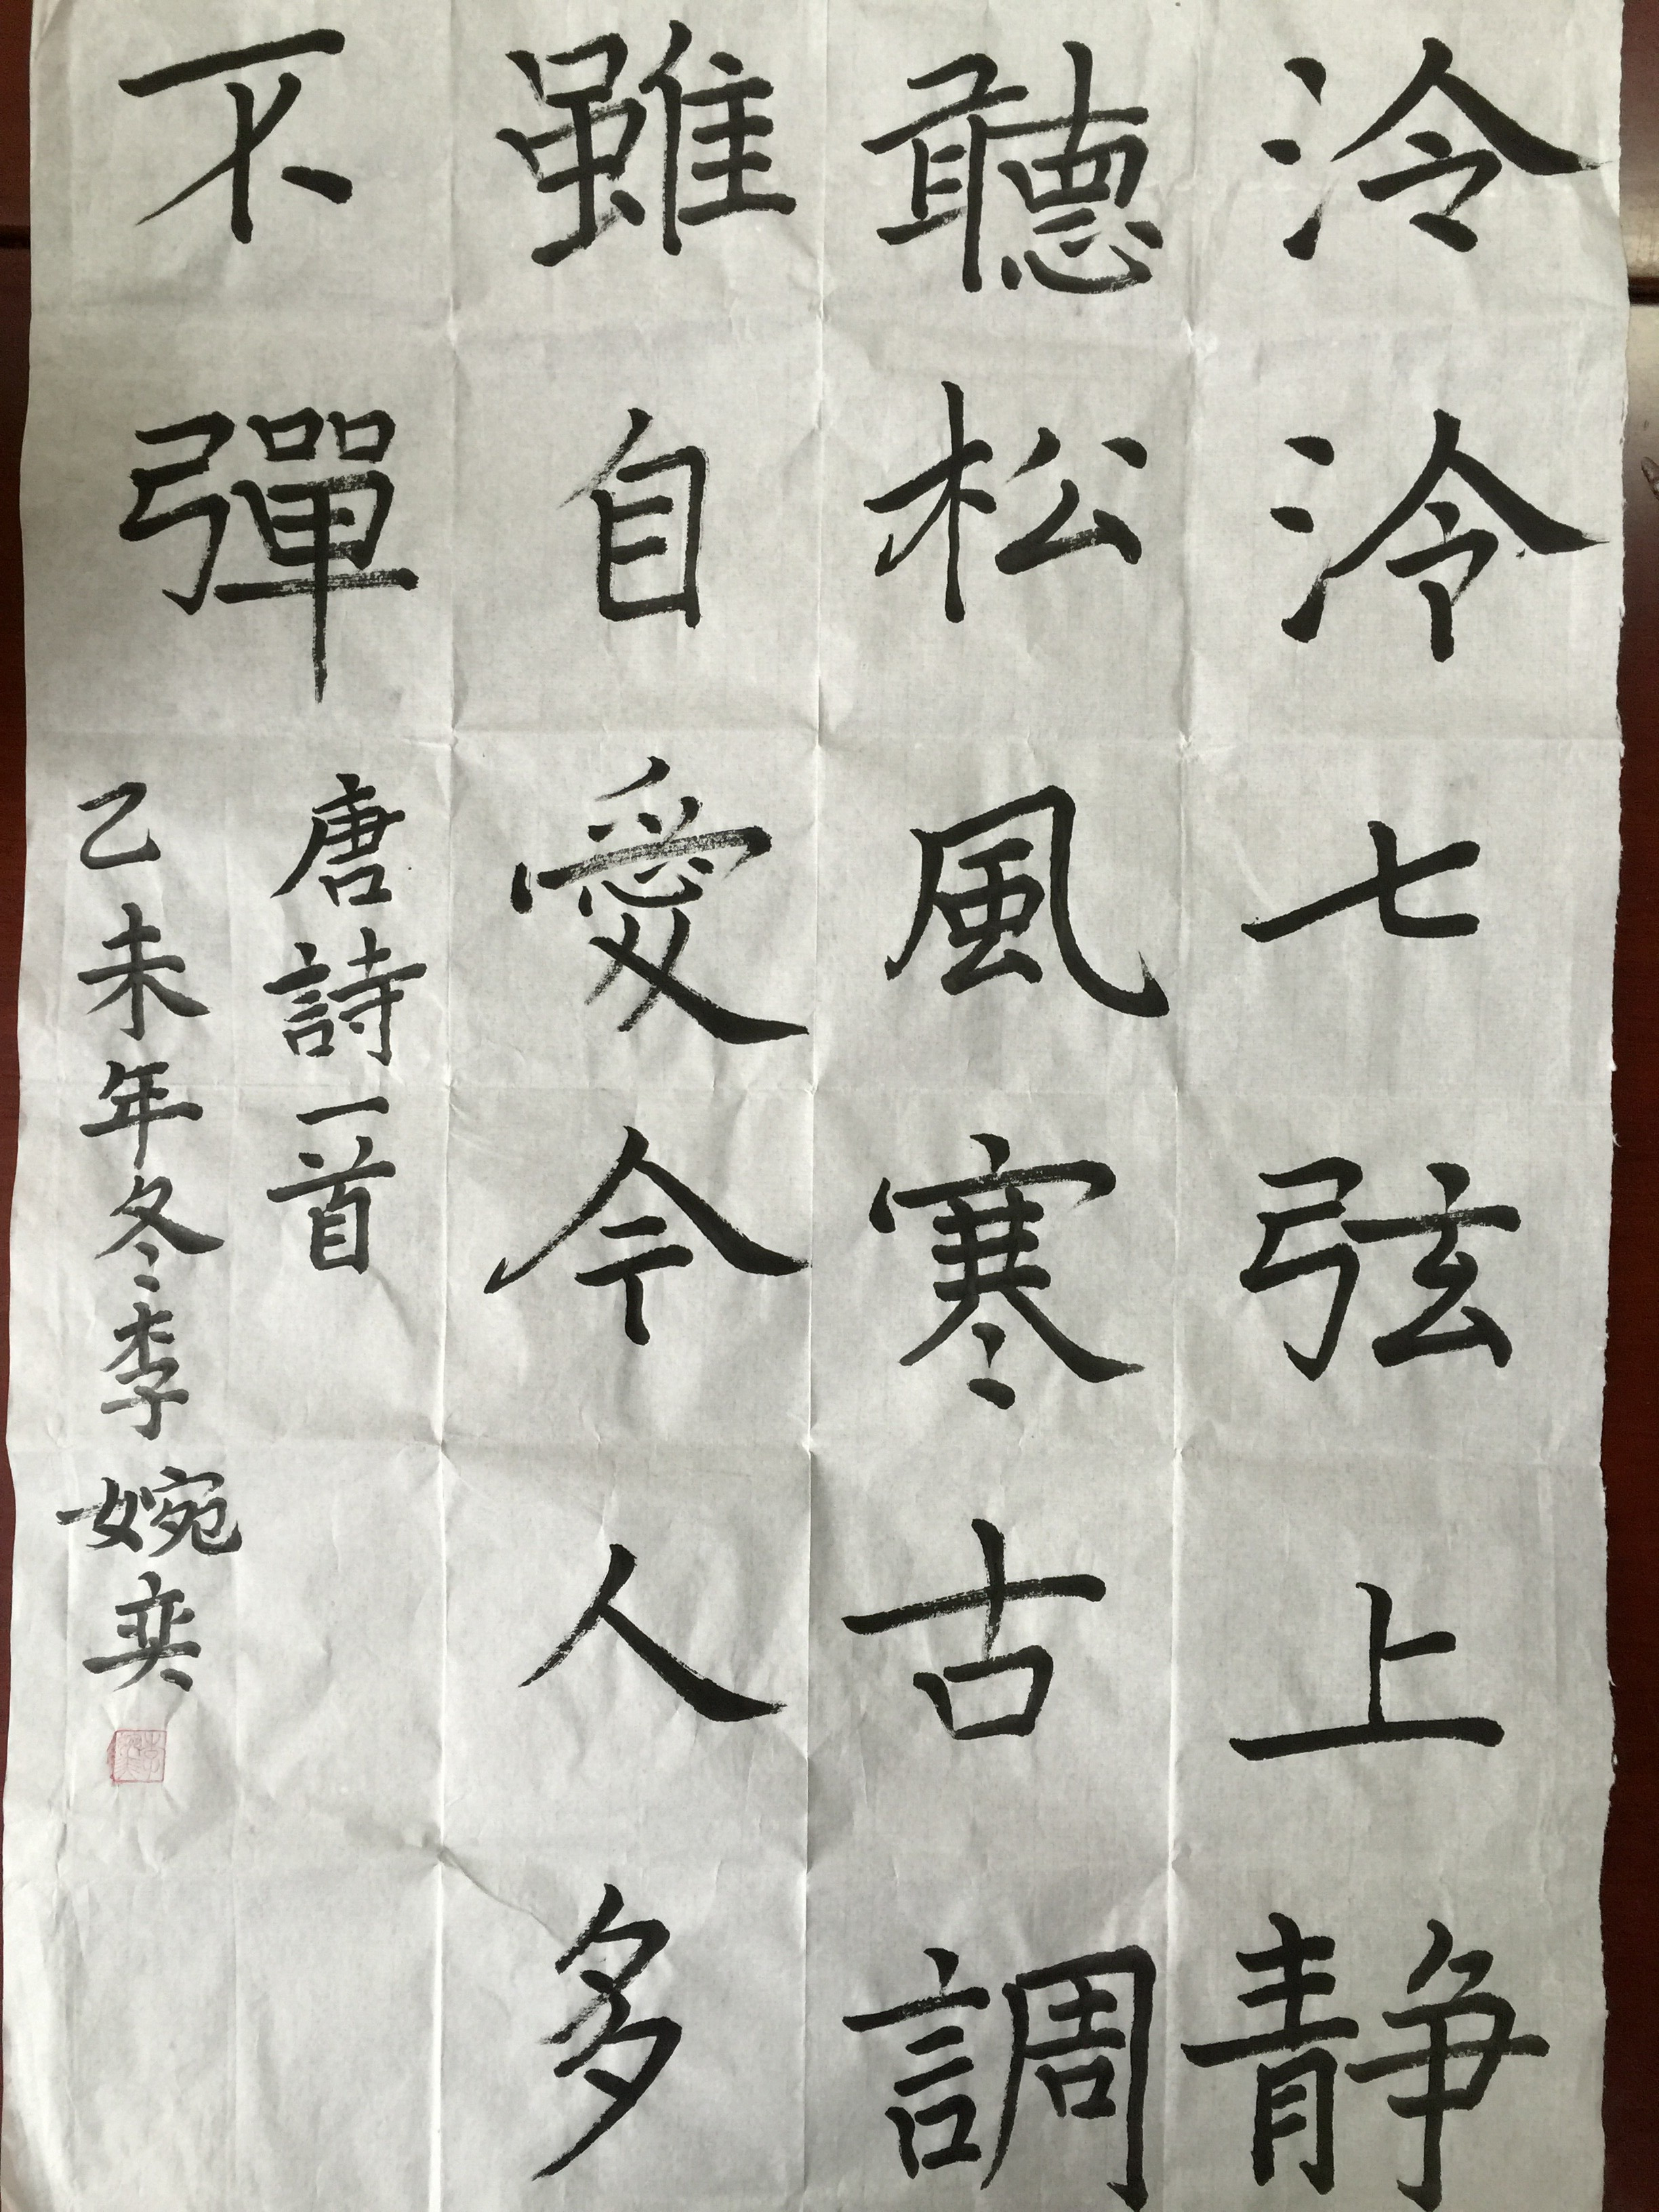 泠泠七弦上静
聽松風寒古調
雖自愛今人多
不彈
唐詩一首
乙未年冬季婉奕